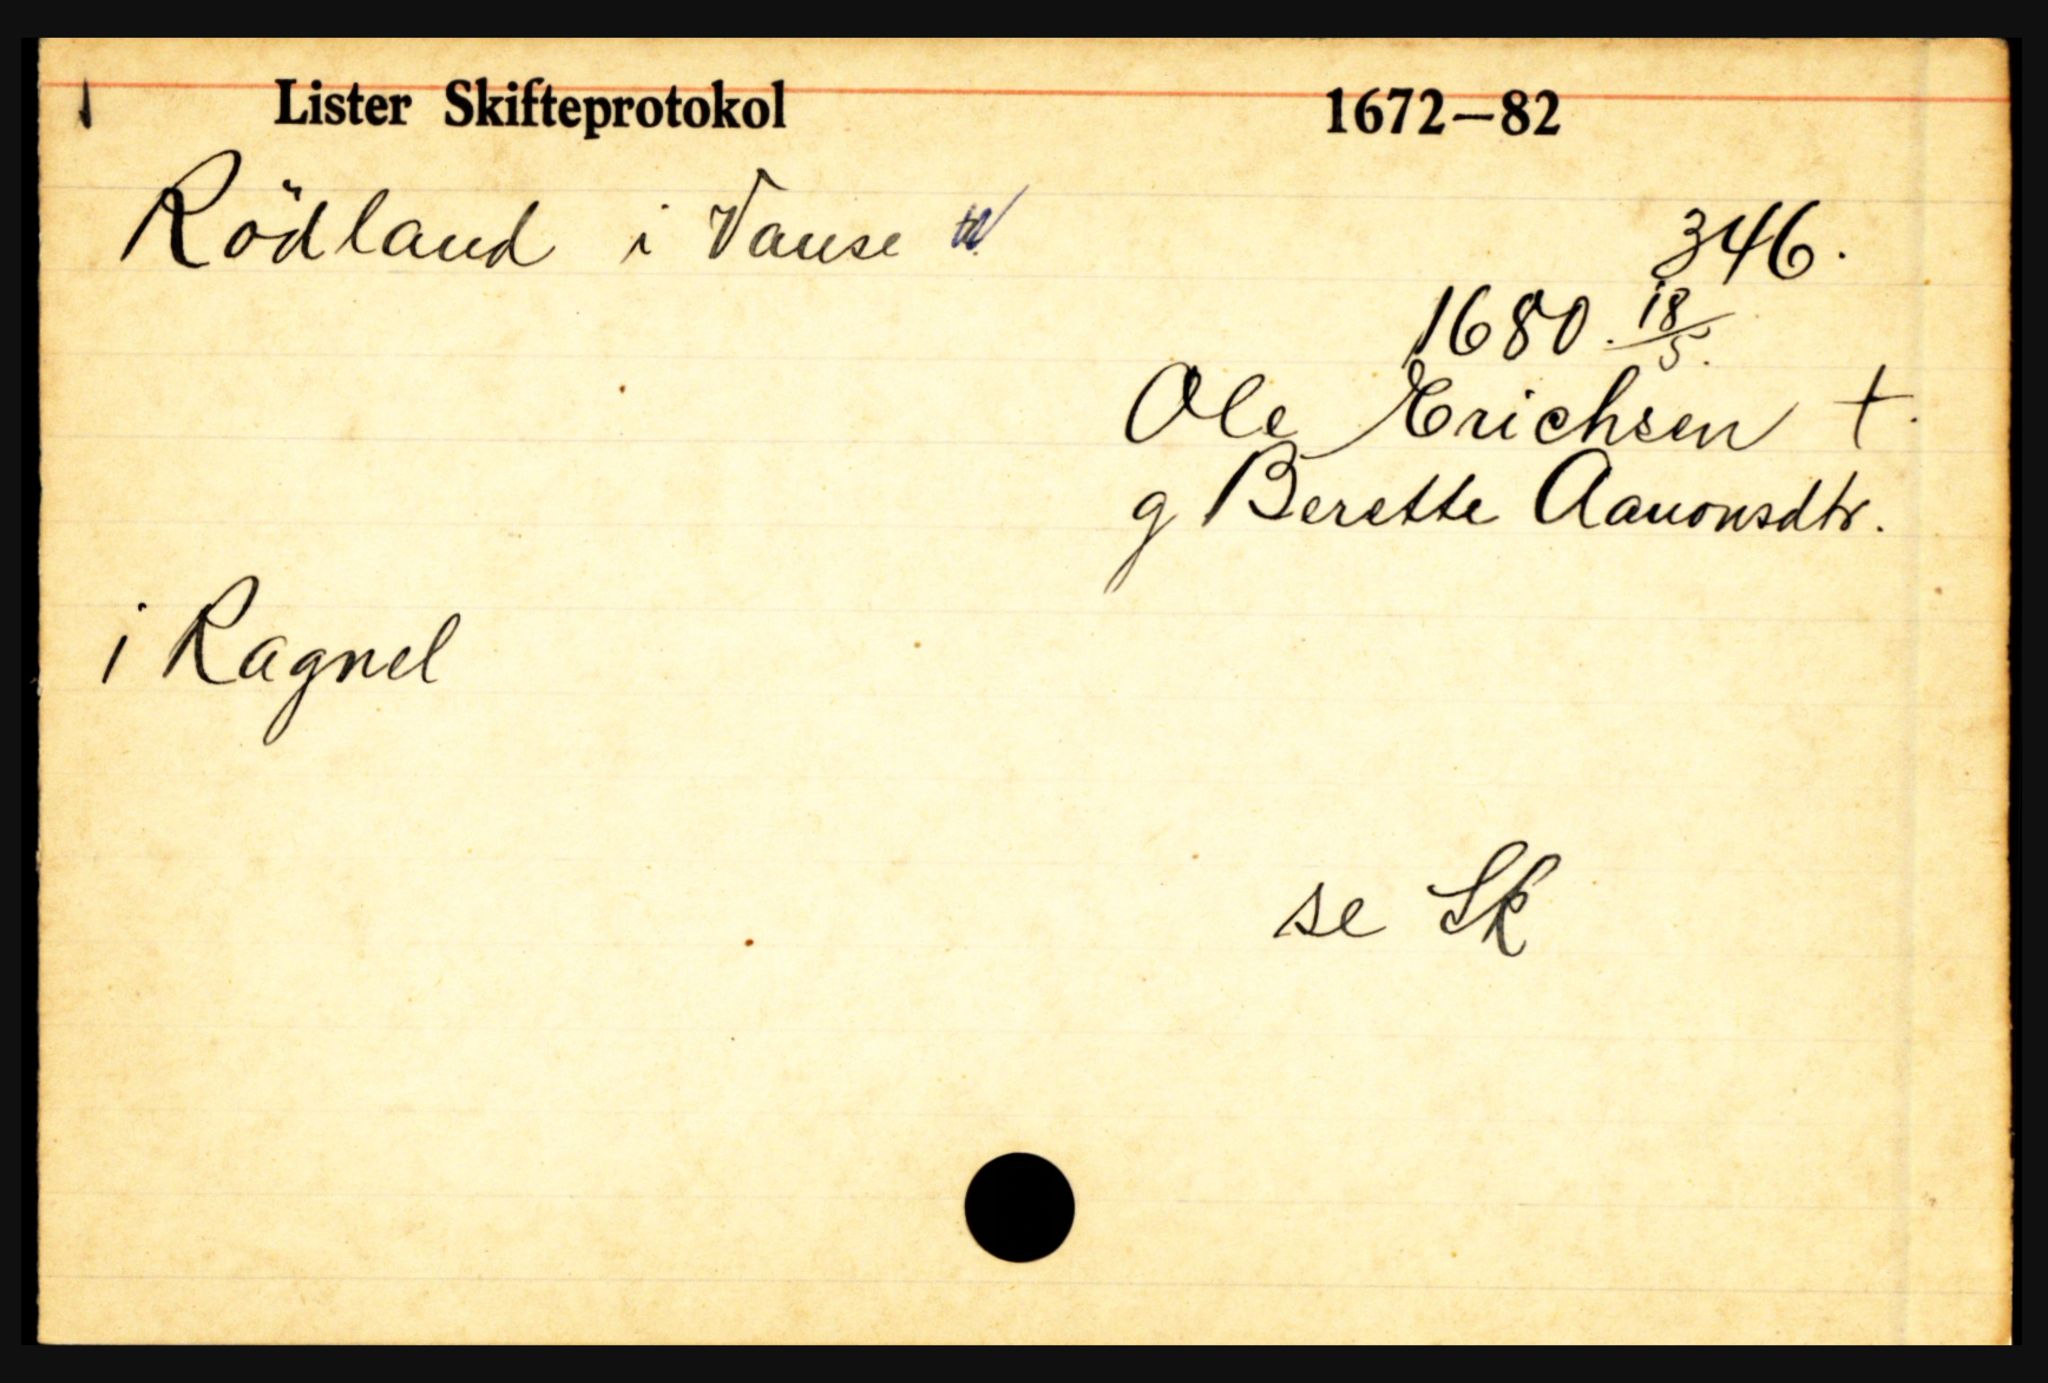 Lister Skifteprotokol 1672—82
Rödland i Vanse
346.
1680. 18/5.
Ole Erichsen †.
g Berette Aanonsdtr.
i Ragnel
se Sk